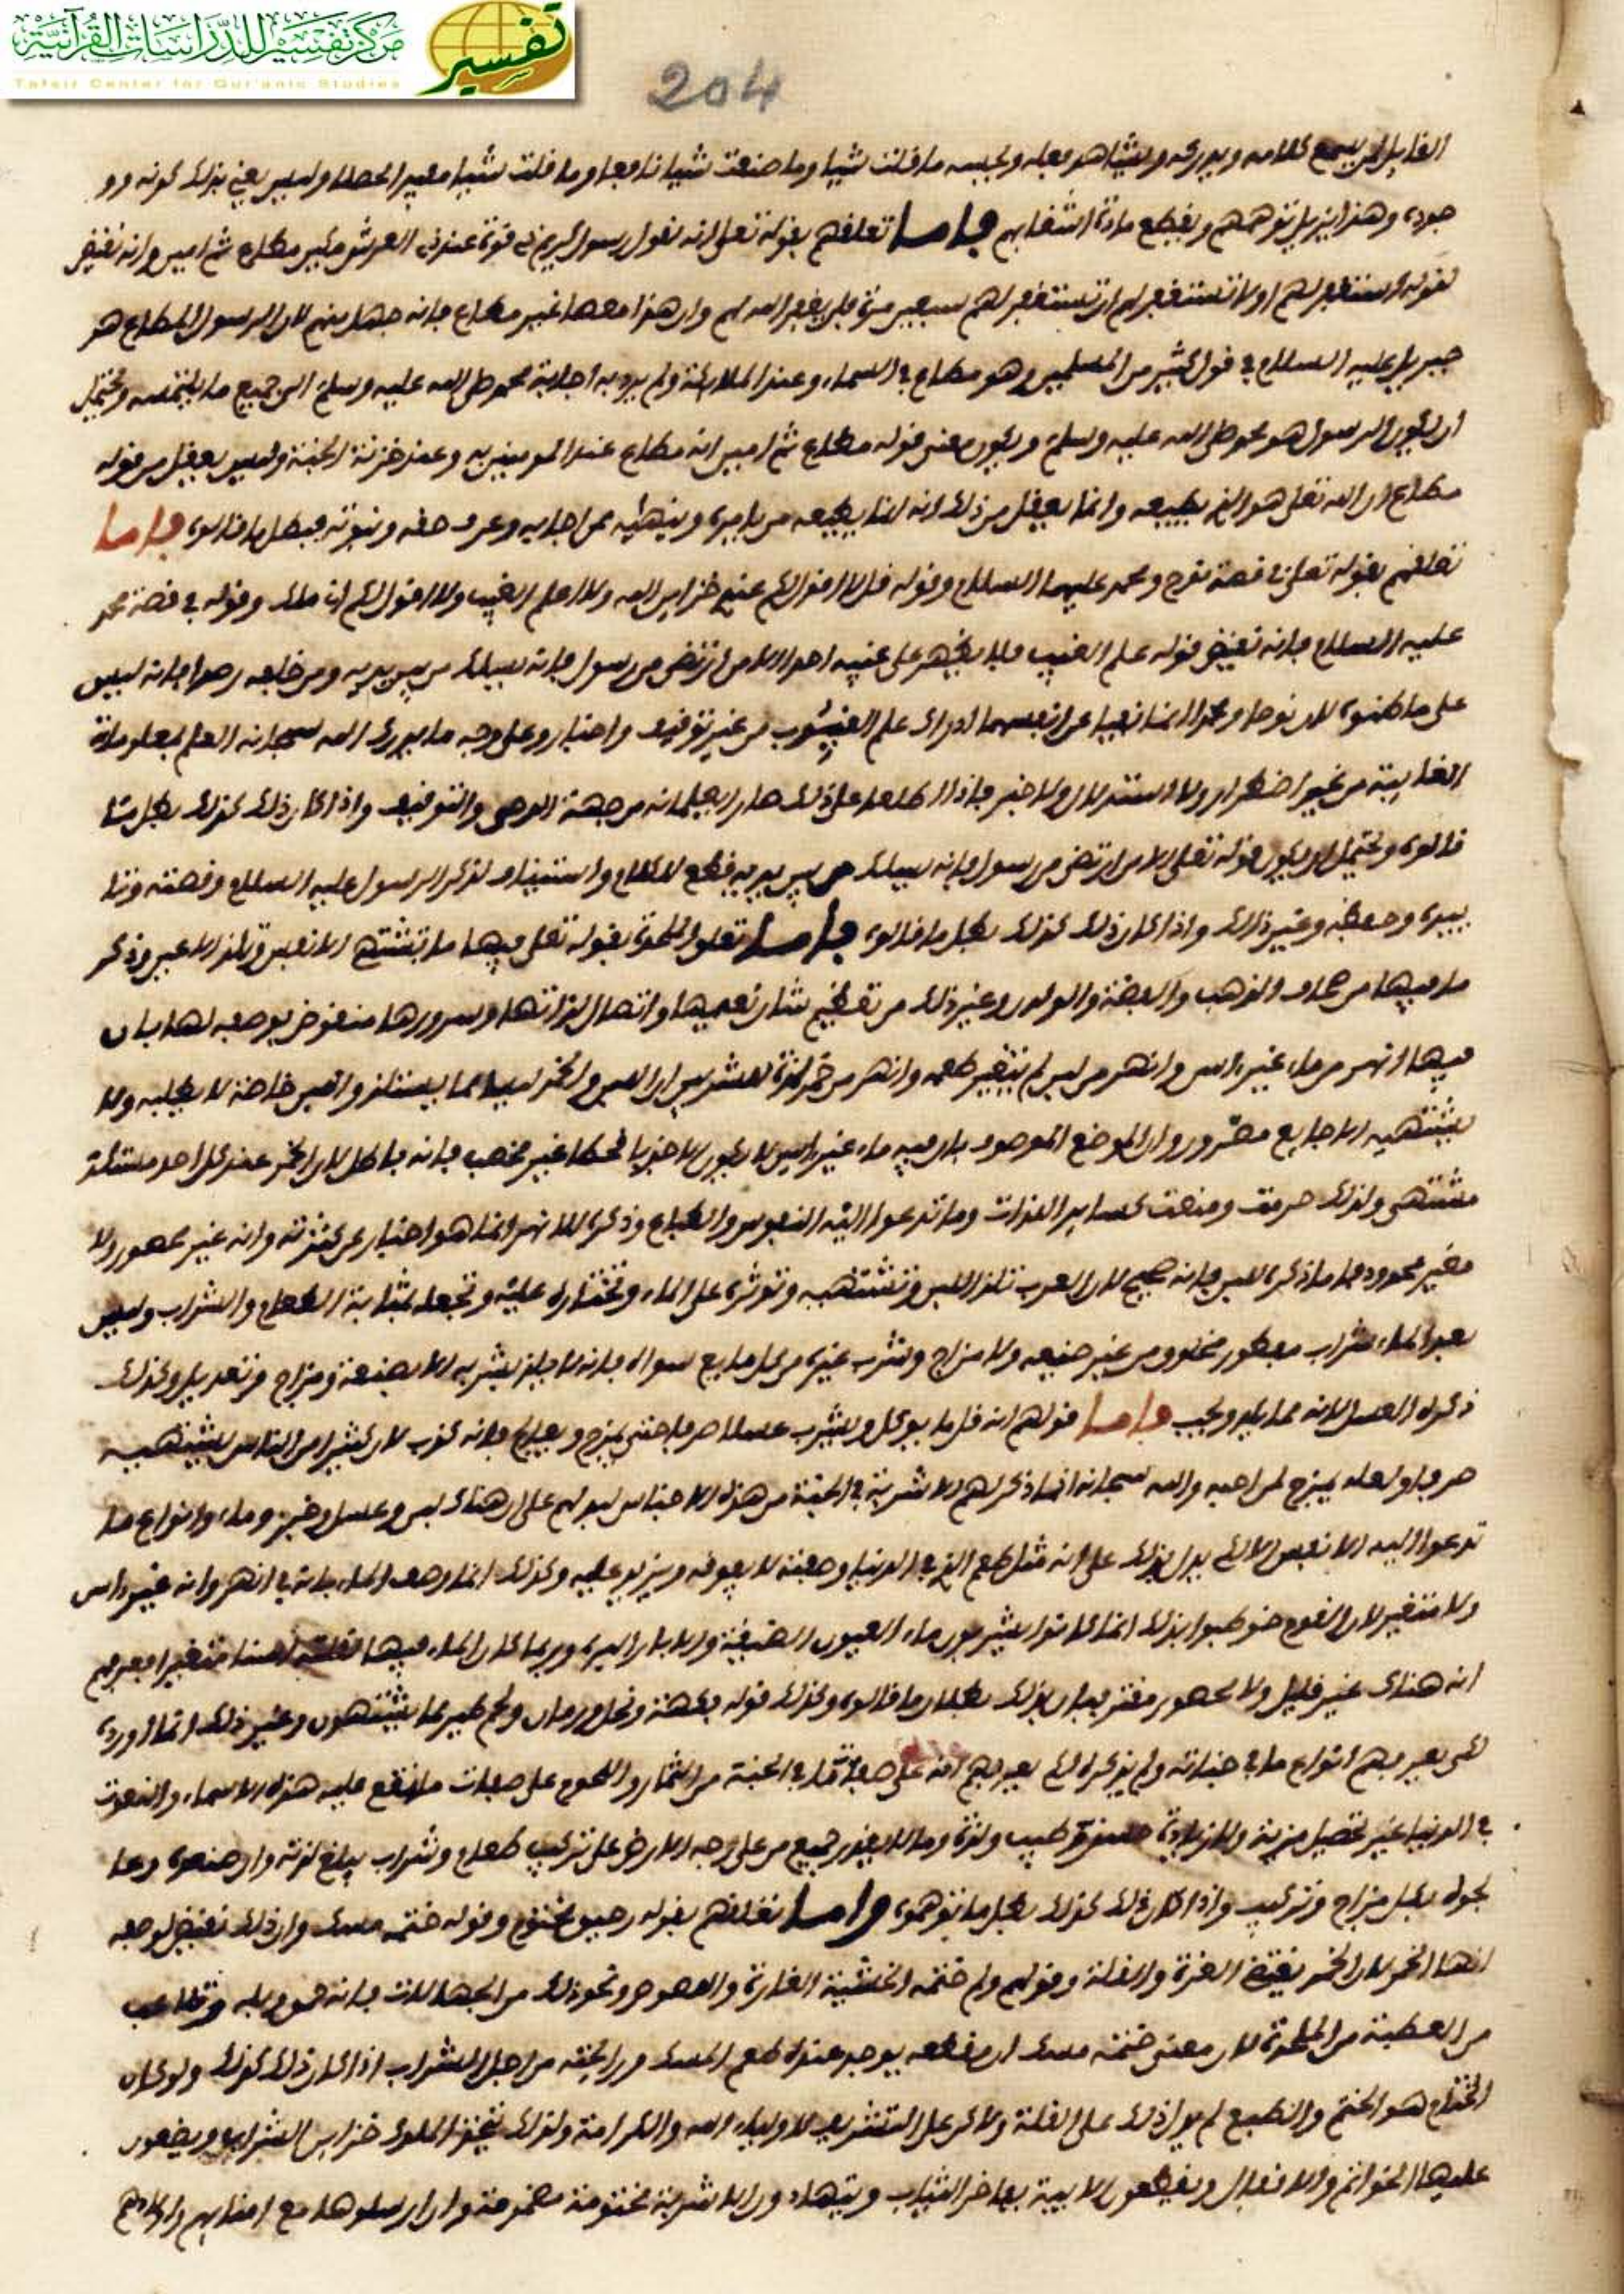 مركز تفسير للدراسات القرآنية
Tafsir Center for Qur'anic Studies
تفسير
204
القايل لمن يسمع كلامه ويدركه ويشاهد فعله ولجسه ما قلت شيا وما صنعت شيا نافعا وما قلت شيا مفيدا وليس يعني بذلك كونه وو
جوده وهذا يزيل توهمهم ويقطع مادة اشغابهم فاما تعلقهم بقوله تعلى انه لقول رسول كريم ذي قوة عند ذي العرش مكين مطاع ثم امين وانه نقيض
لقوله استغفر لهم او لا تستغفر لهم ان تستغفر لهم سبعين مرة فلن يغفر الله لهم وان هذا معصا غير مطاع فانه جهل منهم لان الرسول المطاع هو
جبريل عليه السلام في قول كثير من المسلمين وهو مطاع في السماء وعند الملائكة ولم يرد به اجابة محمد صلى الله عليه وسلم الى جميع ما يلتمسه ويحتمل
ان يكون الرسول هو محمد صلى الله عليه وسلم ويكون معنى قوله مطاع ثم امين انه مطاع عند المومنين به وعند خزنة الجنة وليس يعقل من قوله
مطاع ان الله تعلى هو الذي يطيعه وانما يعقل من ذلك انه انما يطيعه من يامره وينهيه ممن اجابه وعرف حقه ونبوته فبطل ما قالوه فاما
تعلقهم بقوله تعلى في قصة نوح ومحمد عليهما السلام وقوله قل لا اقول لكم عندي خزاين الله ولا اعلم الغيب ولا اقول لكم اني ملك وقوله في قصة محمد
عليه السلام فانه نقيض قوله علم الغيب فلا يظهر على غيبه احدا الا من ارتضى من رسول فانه يسلك من بين يديه ومن خلفه رصدا فانه ليس
على ما ظنوه لان نوحا ومحمدا انما نفيا عن انفسهما ادراك علم الغيوب من غير توقيف واخبار وعلى وجه ما يدرك الله سبحانه العلم بمعلوماته
الغايبة من غير اضطرار ولا استدلال ولا خبر فاذا اطلعا على ذلك صارا يعلمانه من جهة الوحي والتوقيف واذا كان ذلك كذلك بطل ما
قالوه ويحتمل ان يكون قوله تعلى الا من ارتضى من رسول فانه يسلك من بين يديه قطع للكلام واستيناف لذكر الرسول عليه السلام وقصته وتا
ييده وحفظه وغير ذلك واذا كان ذلك كذلك بطل ما قالوه فاما تعلق الملحدة بقوله تعلى فيها ما تشتهي الانفس وتلذ الاعين وذكر
ما فيها من صحاف الذهب والفضة والولدن وغير ذلك من تعظيم شان نعيمها واتصال لذاتها وسرورها منقوض بوصفه لها بان
فيها انهر من ماء غير اسن وانهر من لبن لم يتغير طعمه وانهر من خمر لذة للشربين وان اللبن والخمر ليسا مما يستلذ واللبن خاصة لا يطلبه ولا
يشتهيه الا جايع مضرور وان الموضع الموصوف بان فيه ماء غير اسن لا يكون الا خرابا قحطا غير مخصب فانه باطل لان الخمر عند كل احد مستلذ
مشتهى ولذلك حرمت ومنعت كساير اللذات وما تدعوا اليه النفوس والطباع وذكره للانهر انما هو اخبار عن كثرته وانه غير محصور ولا
مقير محدود فاما ذكره اللبن فانه صحيح لان العرب تلذ اللبن وتشتهيه وتوثره على الماء وتختاره عليه وتجعله بمثابة الطعام والشراب وليس
بعد الماء شراب مفطور مخلوق من غير صنيعه ولا مزاج وشرب غيره من كل مايع سواه فانه لا يلذ شربه الا بصنعة ومزاج وتعديل وكذلك
ذكره العسل لانه مما يلذ ويحب فاما قولهم انه قل ما يوكل ويشرب عسلا صرفا حتى يمزج ويعالج فانه كذب لان كثيرا من الناس يشتهيه
صرفا ولعله يمزج لمن احبه والله سبحانه انما ذكر لهم الاشربة في الجنة من هذه الاجناس ليدلهم على ان هناك لبن وعسل وخمر وماء وانواع ما
تدعوا اليه الانفس لا لكي يدل بذلك على انه مثل طعم الذي في الدنيا وصفته لا يفوقه ويزيد عليه وكذلك انما وصف الماء بانه في انهر وانه غير اسن
ولا متغير لان القوم خوطبوا بذلك انما كانوا يشربون ماء العيون الضيقة والابار اليسيرة وربما كان الماء فيها اسنا متغيرا فعرفهم
انه هناك غير قليل ولا محصور مقتر فبان بذلك بطلان ما قالوه وكذلك قوله بفكهة ونخل ورمان ولحم طير مما يشتهون وغير ذلك انما اورده
لكي يعرفهم انواع ما في جناته ولم يذكره لكي يعرفهم انه على صفة ما في الجنة من الثمار واللحوم على صفات ما يقع عليه هذه الاسماء والنعوت
في الدنيا غير تحصيل مزية ولا زيادة طيب ولذة وما لا يقدر جميع من على وجه الارض على تركيب طعام وشراب يبلغ لذته وان صنعوه وعا
لجوه بكل مزاج وتركيب واذا كان ذلك كذلك بطل ما توهموه واما تعلقهم بقوله رحيق مختوم وقوله ختمه مسك وان ذلك نقيض لوصفه
انها انهر لان الختم يقتضي العزة والقلة وقولهم ولم ختمه الخشية الغارة واللصوص ونحو ذلك من الجهالات فانه حمق وبله وتلاعب
من المعطلة من الملحدة لان معنى ختمه مسك ان مقطعه يوجد عنده طعم المسك ورايحته من اجل الشراب اذا كان ذلك كذلك ولو كان
الختام هو الختم والطبع لم يدل ذلك على القلة ولا كن على التشريف لاولياء الله والكرامة ولذلك يتخذ الملوك خزاين الشراب ويضعون
عليها الخواتم والاقفال ويقطعون الابية بفاخر الثياب ويتهادون الاشربة مختومة مضمومة وان ارسلوها مع امنايهم واكابرهم